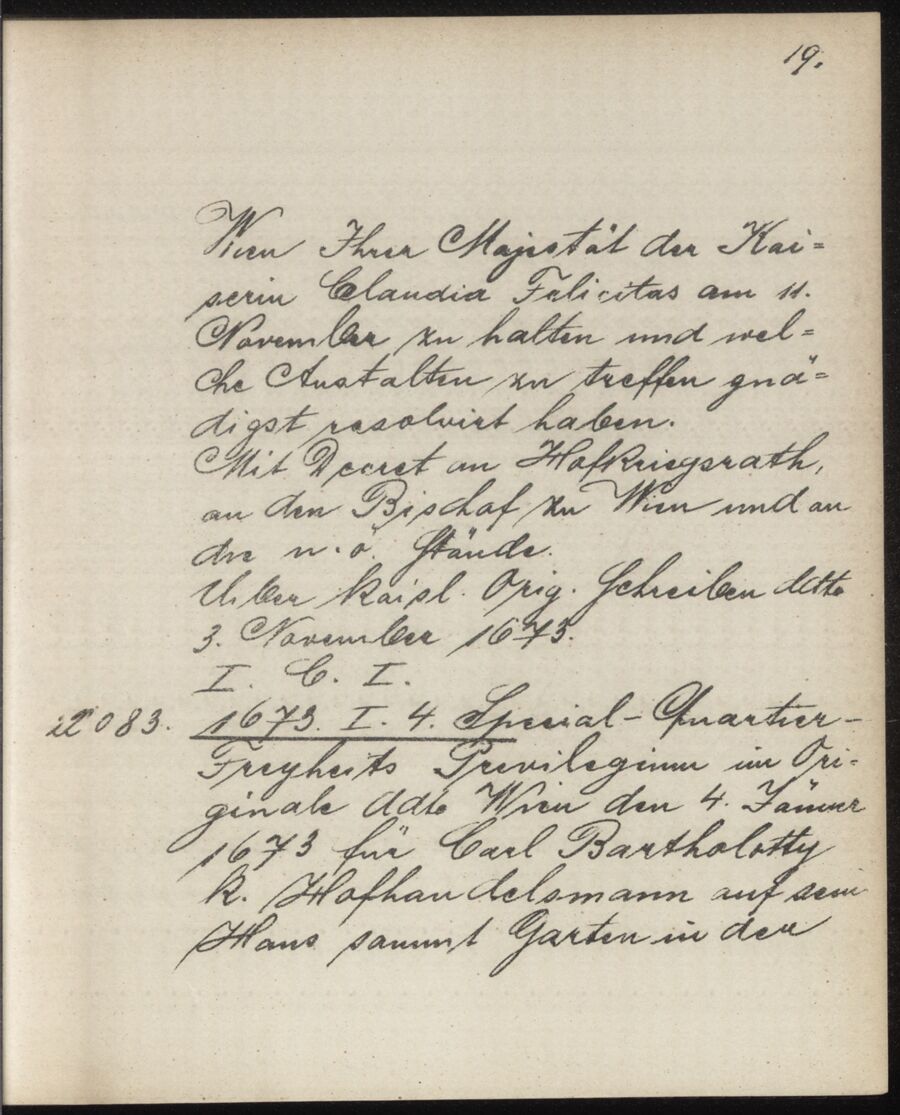 19.
Wien Ihrer Majestät der Kai=
serin Claudia Felicitas am 11.
November zu halten und wel=
che Anstalten zu treffen gnä=
digst resolvirt haben.
Mit Decret an Hofkriegsrath,
an den Bischof zu Wien und an
die n. ö. Stände.
Über kaisl. Orig. Schreiben ddto
3. November 1673.
I. C. I.
083. 1673. I. 4. Special-Quartier-
Freyheits Previlegium im Ori=
ginale ddto Wien den 4. Jänner
1673 für Carl Bartholotty
k. Hofhandelsmann auf sein
Haus sammt Garten in der